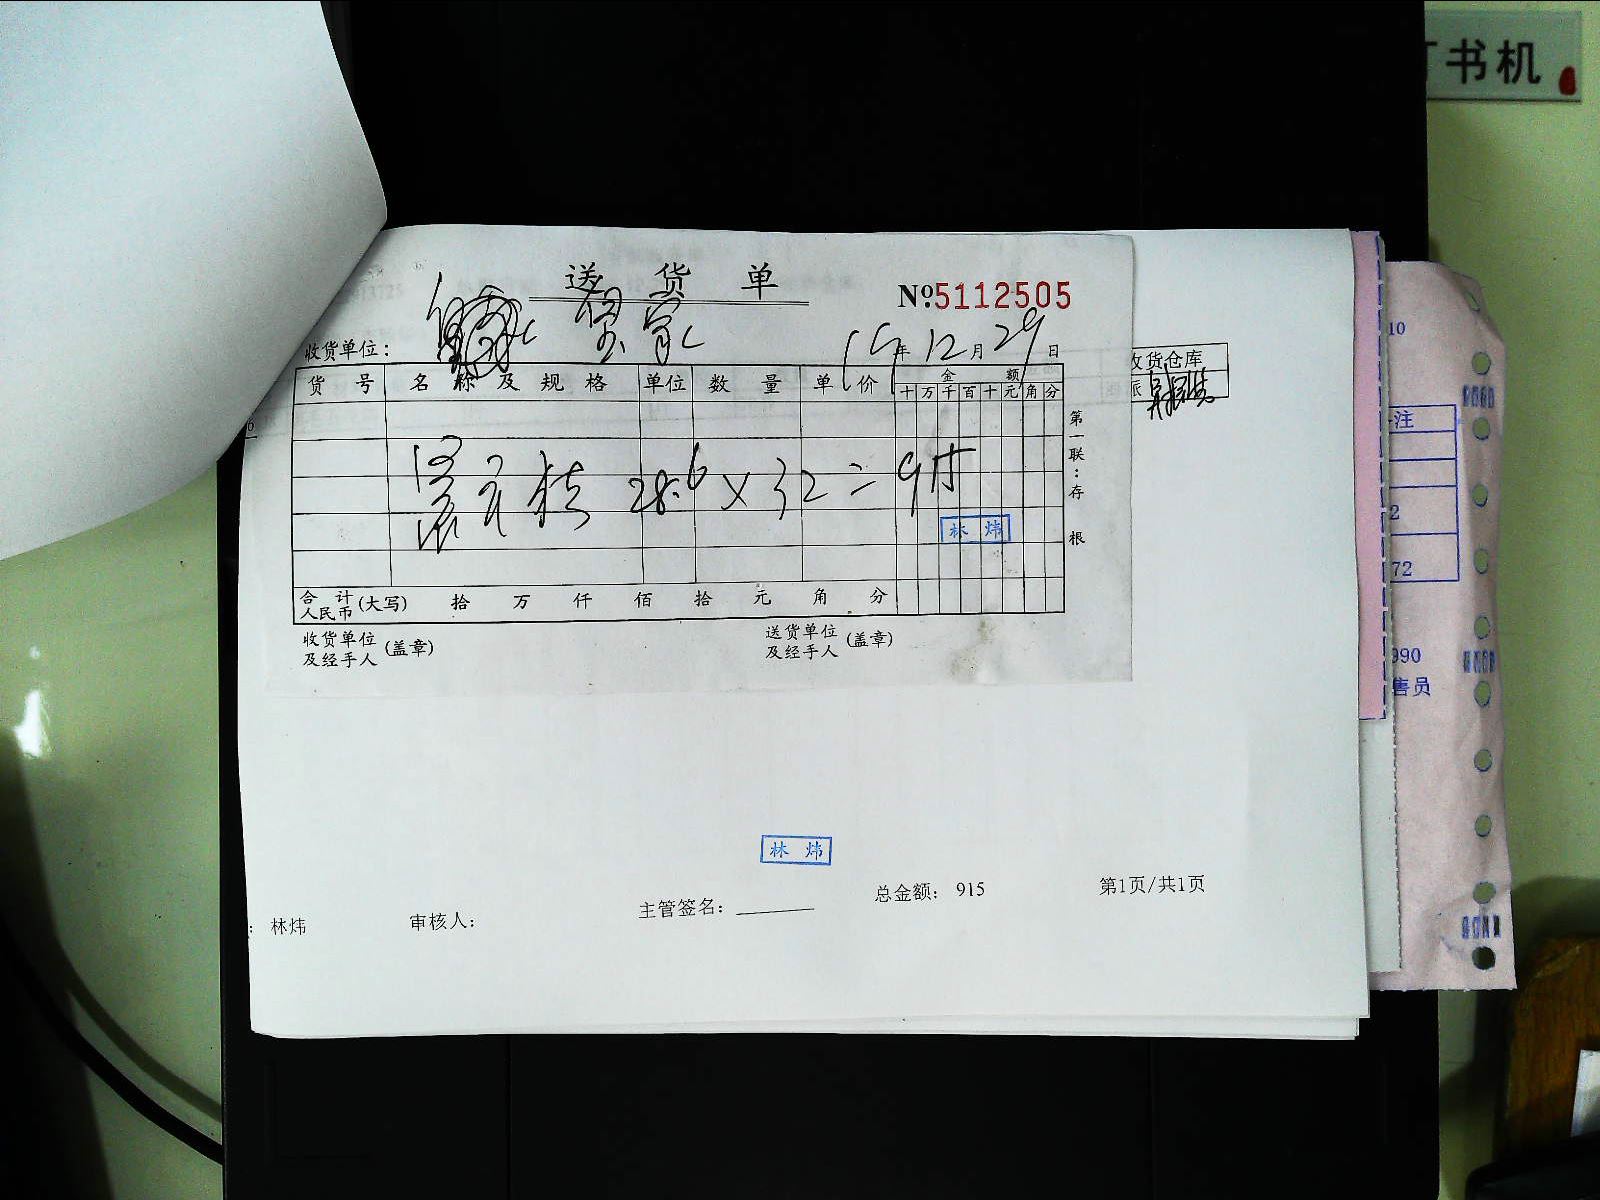 书机
送货单
№5112505
收货单位:
15年12月29日
收货仓库
货号 名称及规格 单位 数量 单价 金额
十万千百十元角分
28.6×32=915
林炜
第一联:存根
合计人民币(大写) 拾 万 仟 佰 拾 元 角 分
收货单位及经手人(盖章)
送货单位及经手人(盖章)
注
2
72
990
售员
10
林炜
: 林炜
审核人:
主管签名:
总金额: 915
第1页/共1页